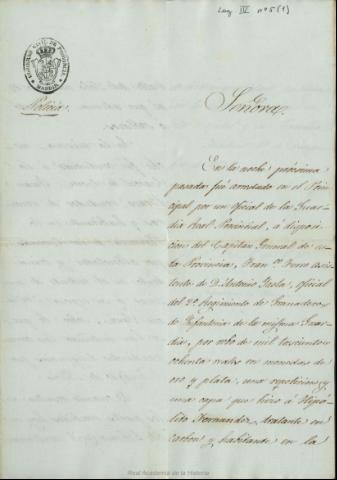 Leg. IV nº 5 (1)
GOBIERNO CIVIL DE PROVINCIA
MADRID
Policia.
Señora.
En la noche próxima
pasada fué arrestado en el Prin-
cipal por un oficial de la Guar-
dia Real Provincial, á disposi-
cion del Capitan General de es-
ta Provincia, Fran.co asis-
tente de D. Antonio oficial
del 2º Regimiento de Granaderos
de Ynfanteria de la misma Guar-
dia, por robo de mil trescientos
ochenta reales en monedas de
oro y plata, una y
una capa que hizo á Hipó-
lito Fernandez, tratante en
carbon y habitante en la
Real Academia de la Historia